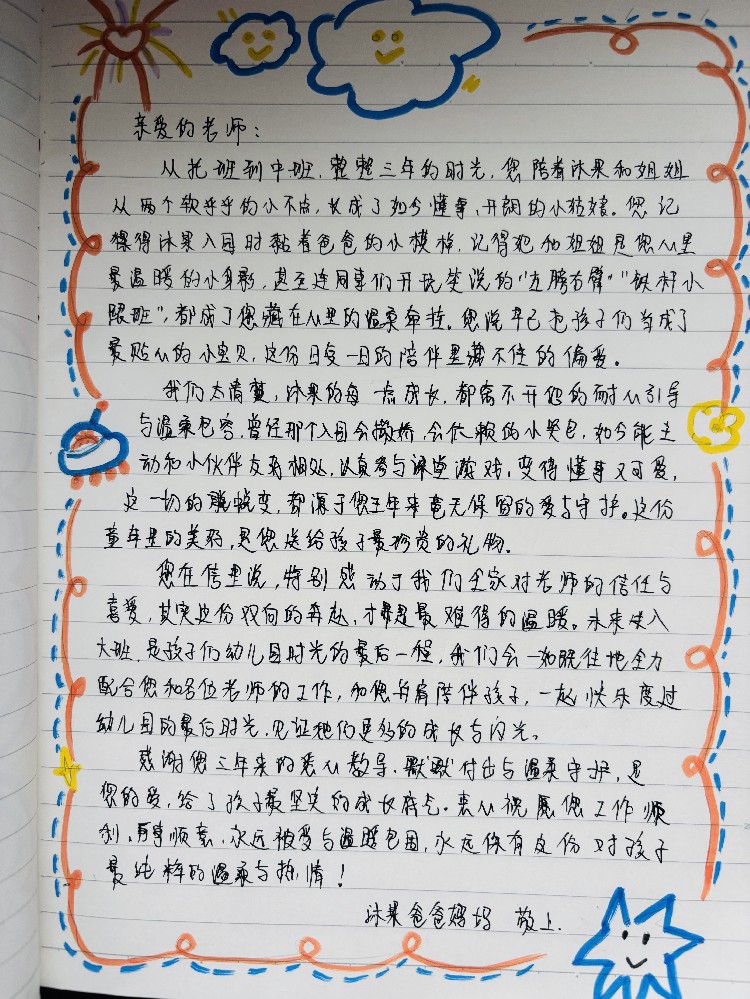 亲爱的老师：
从托班到中班，整整三年的时光，您陪着沐果和姐姐
从两个软乎乎的小不点，长成了如今懂事、开朗的小姑娘。您记
得沐果入园时黏着爸爸的小模样，记得她和姐姐是您心里
最温暖的小身影，甚至连同事们开玩笑说的“左膀右臂”“铁杆小
跟班”，都成了您藏在心里的温柔牵挂。您说早已把孩子们当成了
最贴心的小宝贝，这份日复一日的陪伴里藏不住的偏爱。
我们太清楚，沐果的每一点成长，都离不开您的耐心引导
与温柔包容，曾经那个入园会撒娇、会依赖的小哭包，如今能主
动和小伙伴友好相处，认真参与课堂游戏，变得懂事又可爱，
这一切的蜕变，都源于您三年来毫无保留的爱与守护。这份
童年里的美好，是您送给孩子最珍贵的礼物。
您在信里说，特别感动于我们全家对老师的信任与
喜爱，其实这份双向的奔赴，才是最难得的温暖。未来步入
大班，是孩子们幼儿园时光的最后一程，我们会一如既往地全力
配合您和各位老师的工作，和您并肩陪伴孩子，一起快乐度过
幼儿园的最后时光，见证她们更多的成长与闪光。
感谢您三年来的悉心教导、默默付出与温柔守护，是
您的爱，给了孩子最坚实的成长底气。衷心祝愿您工作顺
利、万事顺意，永远被爱与温暖包围，永远保有这份对孩子
最纯粹的温柔与热情！
沐果爸爸妈妈 敬上.